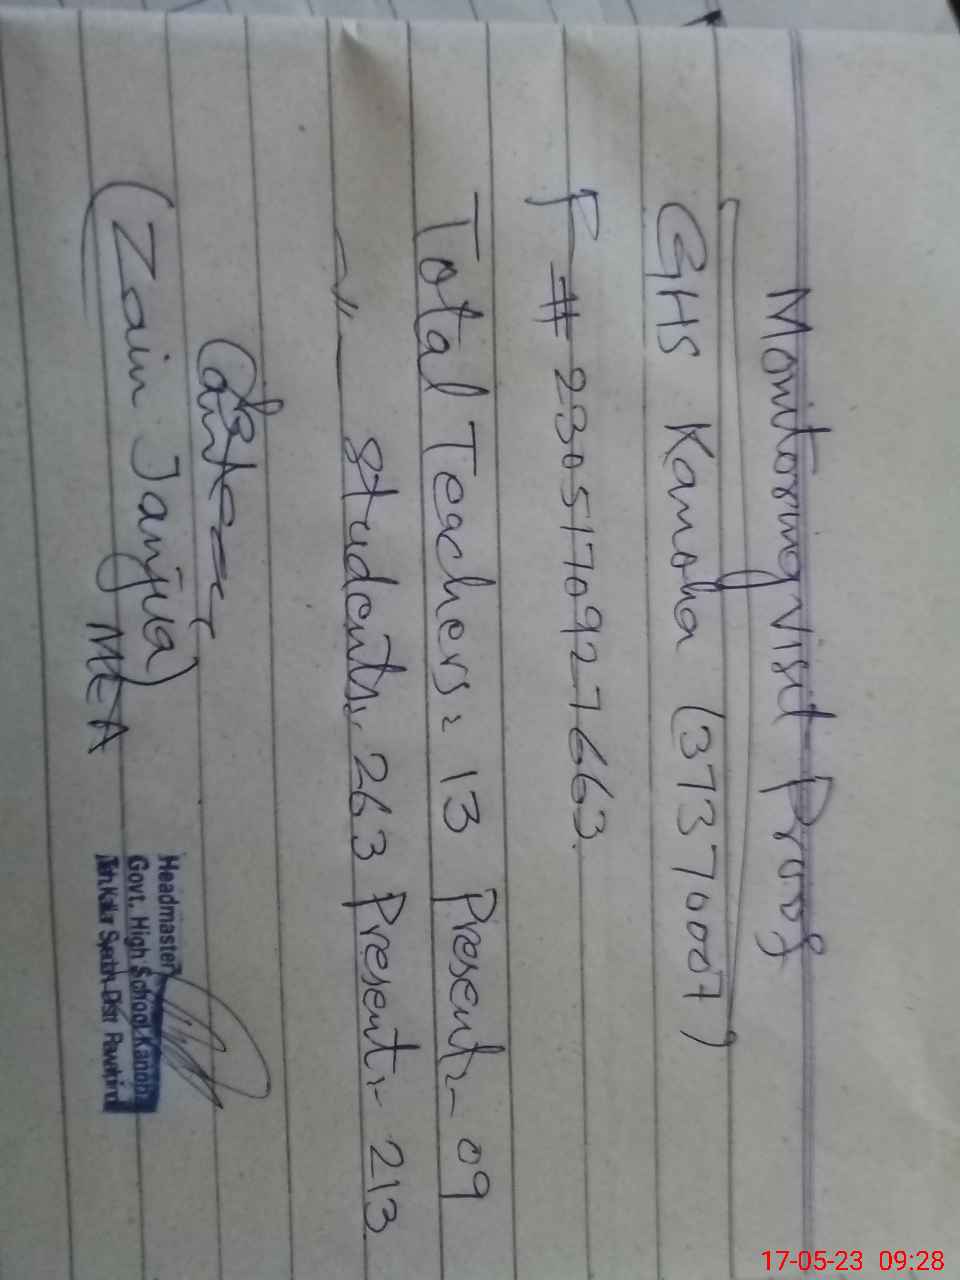 Monitoring Visit Proof
GHS Kanoha (37370007)
P # 2305170927663.
Total Teachers = 13 Present :- 09
—〃— Students :- 263 Present :- 213
(Zain Janjua)
MEA
Headmaster
Govt. High School Kanoha
Teh Kallar Syedan Distt Rawalpindi
17-05-23 09:28